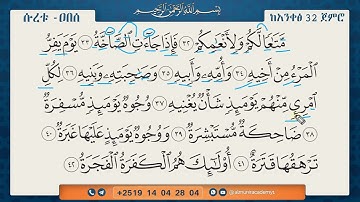 ሱረቱ - ዐበሰ
بِسْمِ اللَّهِ الرَّحْمَٰنِ الرَّحِيمِ
ከአንቀፅ 32 ጀምሮ
مَّتَٰعًا لَّكُمْ وَلِأَنْعَٰمِكُمْ ٣٢ فَإِذَا جَآءَتِ ٱلصَّآخَّةُ ٣٣ يَوْمَ يَفِرُّ
ٱلْمَرْءُ مِنْ أَخِيهِ ٣٤ وَأُمِّهِۦ وَأَبِيهِ ٣٥ وَصَٰحِبَتِهِۦ وَبَنِيهِ ٣٦ لِكُلِّ
ٱمْرِئٍ مِّنْهُمْ يَوْمَئِذٍ شَأْنٌ يُغْنِيهِ ٣٧ وُجُوهٌ يَوْمَئِذٍ مُّسْفِرَةٌ
٣٨ ضَاحِكَةٌ مُّسْتَبْشِرَةٌ ٣٩ وَوُجُوهٌ يَوْمَئِذٍ عَلَيْهَا غَبَرَةٌ ٤٠
تَرْهَقُهَا قَتَرَةٌ ٤١ أُو۟لَٰٓئِكَ هُمُ ٱلْكَفَرَةُ ٱلْفَجَرَةُ ٤٢
+2519 14 04 28 04